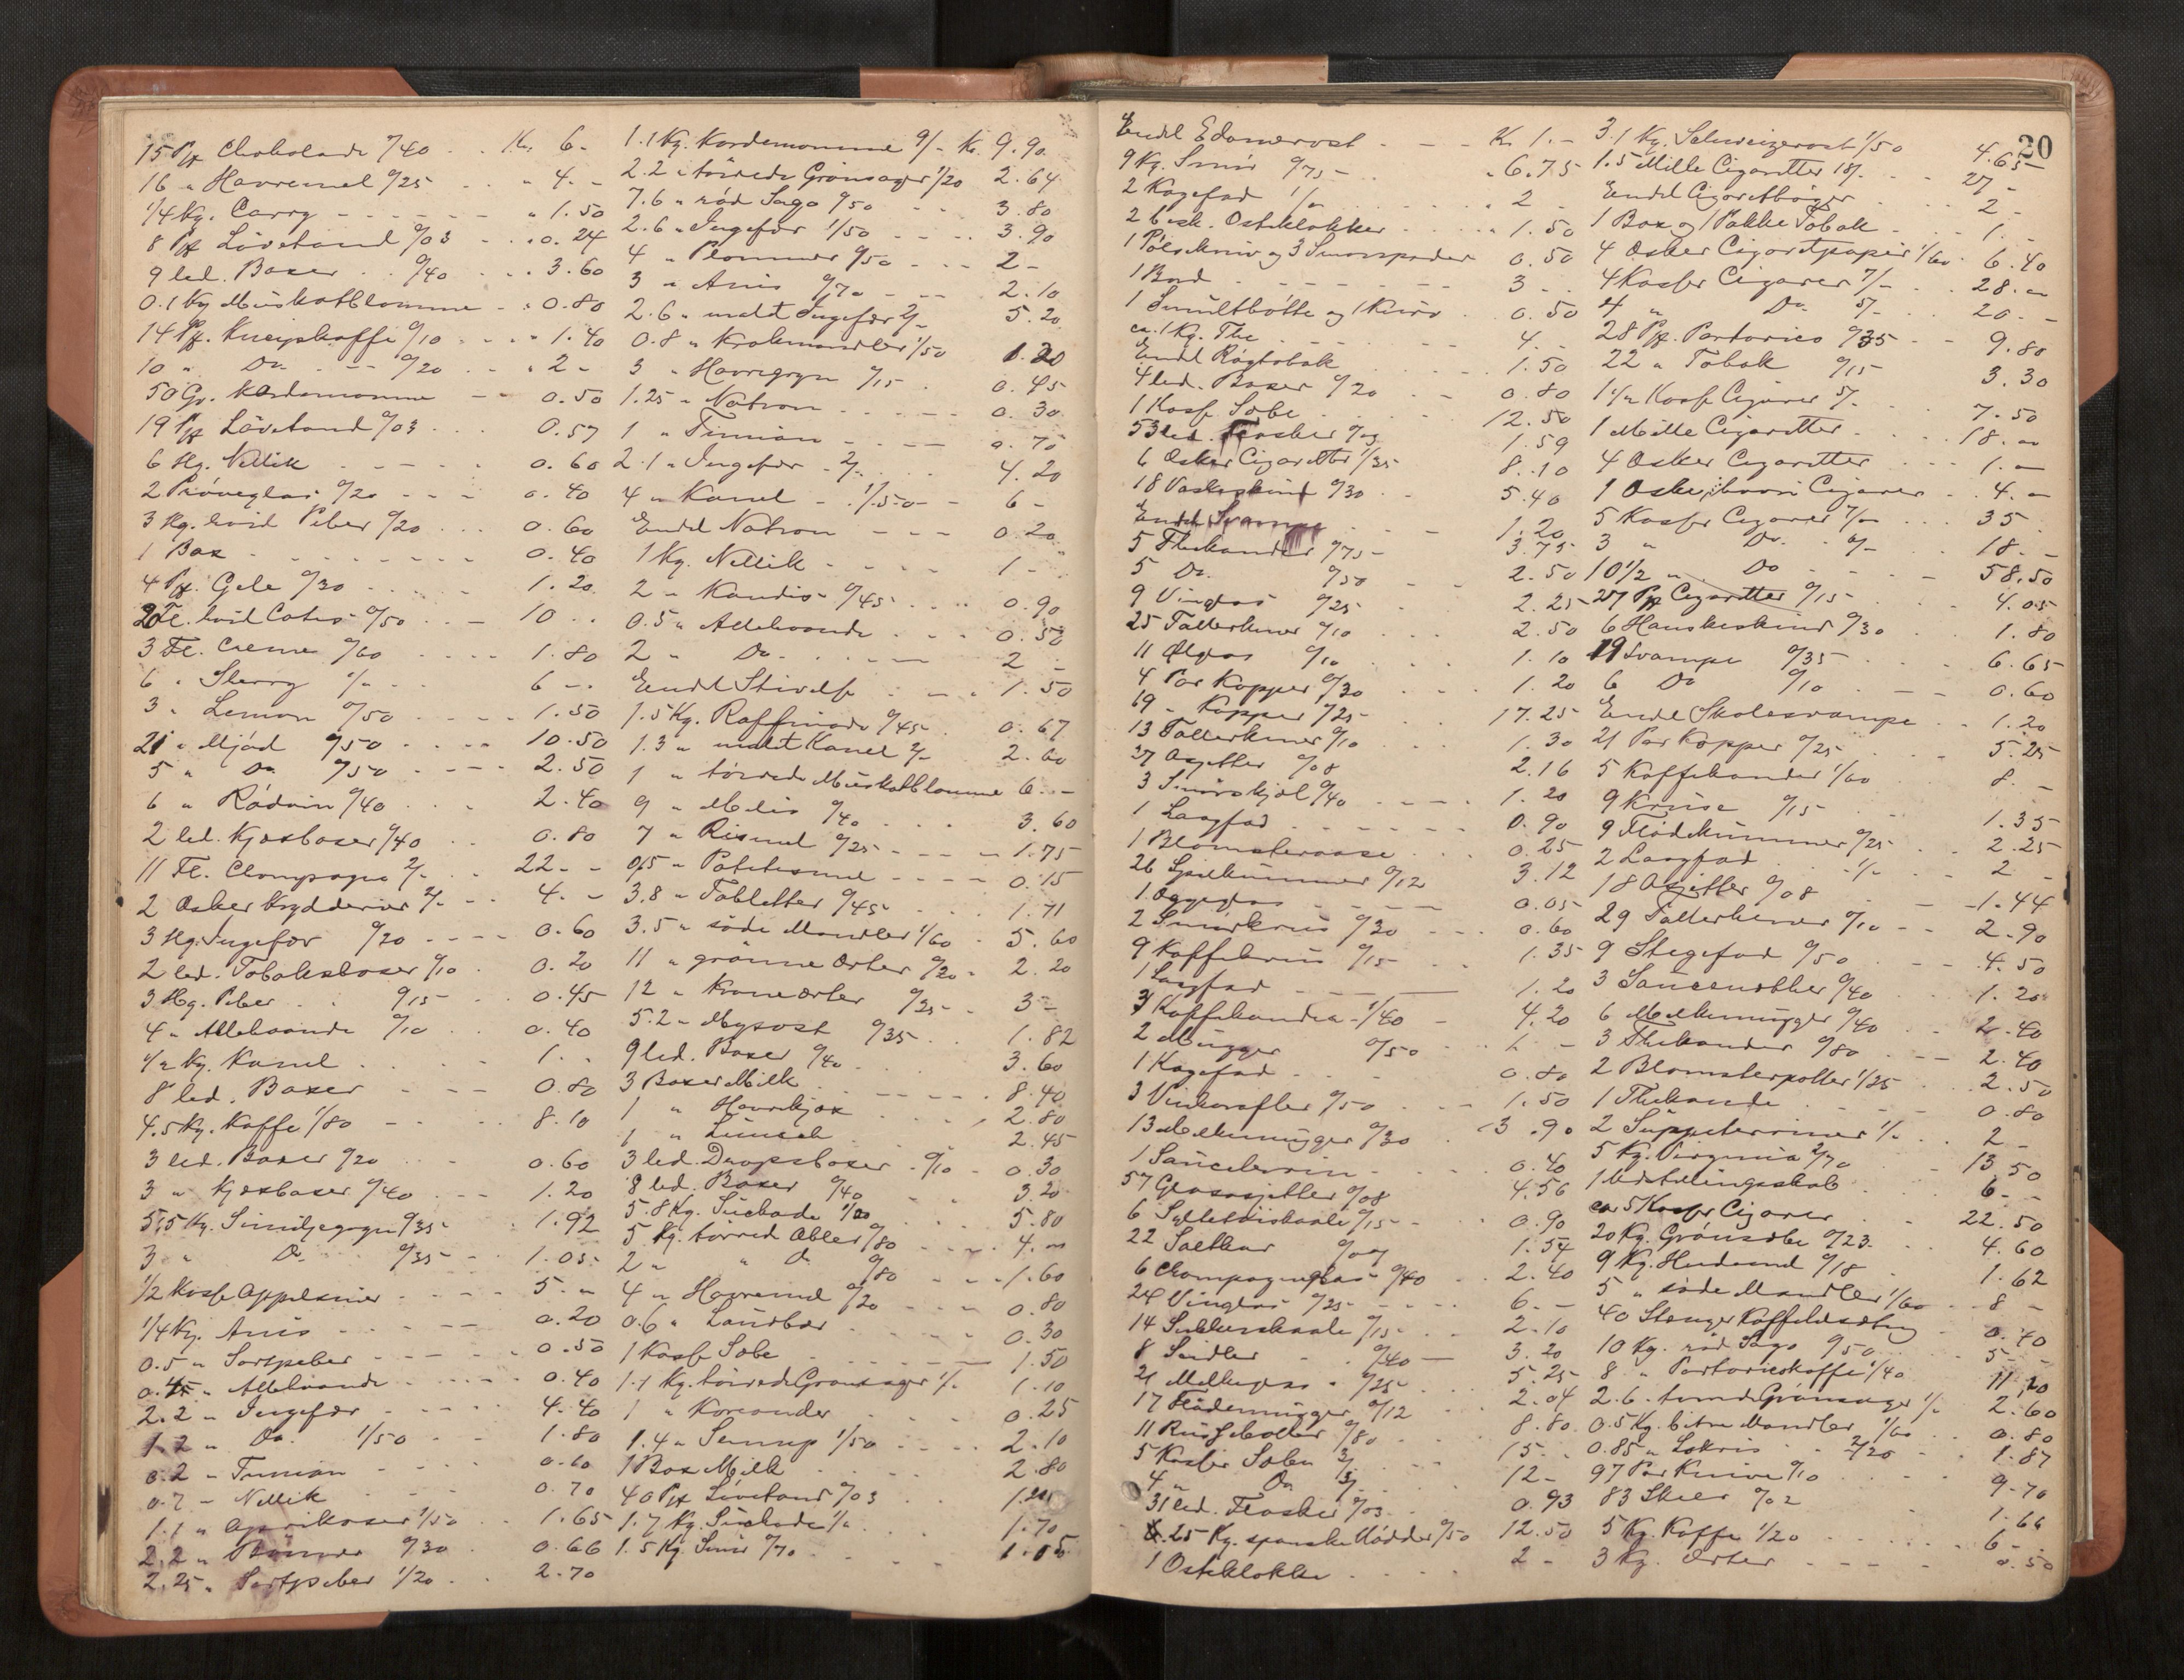 15 Pk Chokolade 0/40 . . Kr. 6.-
16 " Havremel 0/25 . . " 4. -
1/4 Kg. Carry - - - - - " 1.50
8 Pk Lövetand 0/03 - . " 0.24
9 led. Baxer . . 0/40 . . . 3.60
0.1 Kg Muskatblomme - . 0.80
14 Pk. Kneipkaffe 0/10 . - - " 1.40
10 " Do. . - - 0/20 . . " 2 -
50 Gr. Kardemomme - - 0.50
19 Pk Lövetand 0/03 . . . 0.57
6 Hg. Nellik - - - - . 0.60
2 Pröveglas 0/20 - - - 0.40
3 Hg. hvid Peber 0/20 . . . 0.60
1 Bax - - - - - - - . 0.40
4 Pk. Gele 0/30 . . . . . 1.20
20 Fl. hvid Cates 0/50 . . - 10 . .
3 Fl. Creme 0/60 . - - - 1.80
6 " Sherry 1/- - . . 6 - .
3 " Lemon 0/50 . . - - 1.50
21 " Mjöd 0/50 . . . - 10.50
5 " Do 0/50 - . - - - 2.50
6 " Rödvin 0/40 . . . 2.40
2 led. Kjöxbaxer 0/40 . . 0.80
11 Fl. Champagne 2/- . . 22. - -
2 Æsker Krydderier 2/- - . 4. -
3 Hg. Ingefær 0/20 - - - - 0.60
2 led. Tobaksbaxer 0/10 . 0.20
3 Hg. Peber . . 0/15 - . . 0.45
4 " Allehaande 0/10 . . 0.40
1/2 Kg. Kanel . . . . 1. .
8 led. Baxer - - - 0.80
4.5 Kg. Kaffe 1/80 - - . 8.10
3 led. Baxer 0/20 . . - 0.60
3 " Kjöxbaxer 0/40 . . - - 1.20
5.5 Kg. Semuljegryn 0/35 . 1.92
3 " Do 0/35 - - 1.05
1/2 Kasse Appelsiner . - - - 5. -
1/4 Kg. Anis . - - . - . 0.20
0.5 " Sortpeber - - - - . 0.50
" Allehaande - - - - 0.40
2.2 " Ingefær . - - - - 4.40
1.2 " Do. 1/50 - - 1.80
0.2 " Timian - - - - 0.60
0.7 " Nellik - - - 0.70
1.1 " Aprikoser 1/50 . . 1.65
2.2 " Bönner 0/30 . 0.66
2.25 " Sortpeber 1/20 . . 2.70
1.1 Kg. Kardemomme 9/- Kr. 9.90
2.2 " törrede Grönsager 1/20 2.64
7.6 " röd Sago 0/50 - - 3.80
2.6 " Ingefær 1/50 - - - - 3.90
4 " Plommer 0/50 - - - 2 -
3 " Anis 0/70 - - - 2.10
2.6 " malt Ingefær 2/- 5.20
0.8 " Krakmandler 1/50 1.20
3 " Havregryn 0/15 . 0.45
1.25 " Natron - - - - - 0.30
1 " Timian - - - - 0.75
2.1 " Ingefær - 2/- . . . 4.20
4 " Kanel - . 1/50 - - 6 -
Endel Natron - - - 0.20
1 Kg. Nellik - - - - 1 -
2 " Kandis 0/45 . . . . 0.90
0.5 " Allehaande . . . . 0.50
2 " Do. . . . . - - 2 -
Endel Stivelse . . - . 1.50
1.5 Kg. Raffinade 0/45 . 0.67
1.3 " malt Kanel 2/- . 2.60
1 " törrede Muskatblomme 6. -
9 " Melis 0/40 . . . . 3.60
7 " Rismel 0/25 - - - - 1.75
0.5 " Potetesmel - - - - - 0.15
3.8 " Tabletter 0/45 - . . . 1.71
3.5 " söde Mandler 1/60 . 5.60
11 " grönne Erter 0/20 . 2.20
12 " Kroneerter 0/25 - . 3 -
5.2 " Mysost 0/35 . . 1.82
9 led. Baxer 0/40 . . . 3.60
3 Baxer Milk . - - - - - 8.40
1 " Havrekjæx . . . . , 2.80
1 " Lunsch . . . . . 2.45
3 led. Dropsbaxer - 0/10 - 0.30
8 led. Baxer 0/40 . . . 3.20
5.8 Kg. Suckade 1/- . . . 5.80
5 Kg. törred Æbler 0/80 . . - 4. -
2 " " Do 0/80 . . . 1.60
4 " Havremel 0/20 - - - 0.80
0.6 " Laurbær - . . . . 0.30
1 Kasse Sæbe . . - - - - 1.50
1.1 Kg. törrede Grönsager 1/- 1.10
1 " Koreander . . . 0.25
1.4 " Sennep 1/50 . . - - 2.10
1 Bax Milk . . . . 2.80
40 Pk Lövetand 0/03 . . 1.20
1.7 Kg. Suckade 1/- . . 1.70
1.5 Kg. Smör 0/70 . . . 1.05
20
Endel Edamerost - - - Kr. 1. -
9 Kg. Smör 0/75 - . . . " 6.75
2 Kagefad 1/- . . . . . " 2 -
2 besk. Osteklokker . . . . " 1.50
1 Pölsekniv og 3 Smörspader 0.50
1 Bord - - - - - - . 3 - .
1 Smultbötte og 1 Kurv . . 0.50
ca. 1 Kg. The . . . . . 4. -
Endel Rögtobak . . . . 1.50
4 led. Baxer 0/20 . . 0.80
1 Kasse Sæbe . . . . 12.50
53 led. Flasker 0/03 . . . 1.59
6 Æsker Cigaretter 1/35 . . 8.10
18 Vaskeskind 0/30 . . 5.40
Endel Svampe . . . . 1.20
5 Thekander 0/75 - . . . 3.75
5 Do. 0/50 - - 2.50
9 Vinglas 0/25 . . 2.25
25 Tallerkner 0/10 . . . 2.50
11 Ølglas 0/10 . . . 1.10
4 Par Kopper 0/30 . . . 1.20
69 " Kopper 0/25 - . . 17.25
13 Tallerkner 0/10 . . . 1.30
27 Asjetter 0/08 . . 2.16
3 Smörskjæl 0/40 - - - - 1.20
1 Langfad - - - - - - 0.90
1 Blomstervase . . . 0.25
26 Spilkummer 0/12 . . 3.12
1 Æggeglas - - - - - 0.05
2 Smörkrus 0/30 . - - - 0.60
9 Kaffekrus 0/15 . . . 1.35
1 Langfad - - - - - 1.20
3 Kaffekander - 1/40 - 4.20
2 Mugger 0/50 - - 1 -
1 Kagefad . - - . - 0.80
3 Vinkarafler 0/50 . . - 1.50
13 Melkemugger 0/30 . . 3.90
1 Sauceterrin - . - . - 0.40
57 Glasasjetter 0/08 . . . 4.56
6 Syltetöiskaale 0/15 - - . 0.90
22 Saltkar 0/07 . . . 1.54
6 Champagneglas 0/40 . . . 2.40
24 Vinglas 0/25 - - - - 6. -
14 Sukkerskaale 0/15 . . . 2.10
8 Seidler - . 0/40 - 3.20
21 Melkeglas " 0/25 . . . 5.25
17 Flödemugger 0/12 . . . 2.04
11 Punschboller 0/80 . . . 8.80
5 Kasser Sæbe 3/- . . . 15 - .
4 " Do 3/- . . 12 -
31 led. Flasker 0/03 . . . 0.93
25 Kg. spanske Nödder 0/50 12.50
1 Osteklokke . . . - 2 -
3.1 Kg. Schweizerost 1/50 4.65
1.5 Mille Cigaretter 18/- . . 27 -
Endel Cigaretbøger - - 2 -
1 Bax og 1 Pakke Tobak - . 1. -
4 Æsker Cigaretpapir 1/60 . 6.40
4 Kasser Cigarer 7/- . . 28. -
4 " Do. 5/- . . . 20. -
28 Pk. Portorico 0/35 - - 9.80
22 " Tobak 0/15 . . . 3.30
1 1/2 Kasse Cigarer 5/- . . 7.50
1 Mille Cigaretter . . . . 18. -
4 Æsker Cigaretter . . . 1. -
1 Æske Cigarer - . . 4. -
5 Kasser Cigarer 7/- . . . 35
3 " Do. . 6/- . . . 18. -
10 1/2 " . Do . - - - - 58.50
27 Pk Cigaretter 0/15 - . . 4.05
6 Hanskeskind 0/30 . . 1.80
19 Svampe 0/35 - . . . 6.65
6 Do 0/10 . . - - 0.60
Endel Skolesvampe . . 1.20
21 Par Kopper 0/25 . . 5.25
5 Kaffekander 1/60 . . . 8. -
9 Kruse 0/15 . . . 1.35
9 Flödekummer 0/25 . . 2.25
2 Langfad . . . 1/- . . . 2 -
18 Asjetter 0/08 . . - - 1.44
29 Tallerkener 0/10 - - 2.90
9 Stegefad 0/50 . . - - 4.50
3 Saucenebber 0/40 . . . 1.20
6 Melkemugger 0/40 . . . 2.40
3 Thekander 0/80 . - - 2.40
2 Blomsterpotter 1/25 . . . 2.50
1 Thekande . . - - - 0.80
2 Suppeterriner 1/- . . . 2 -
5 Kg. Virginia 2/70 . . 13.50
1 Udstillingsskab . . . 6 - -
ca. 5 Kasser Cigarer - - - 22.50
20 Kg. Grönsæbe 0/23 . . . 4.60
9 Kg. Hvedemel 0/18 . . . 1.62
5 " söde Mandler 1/60 - - 8 -
40 Stænger Kaffe 0.40
10 Kg. röd Sago 0/50 . . . 5 - -
8 " Portoricokaffe 1/40 11.20
2.6 . Grönsager 1/- 2.60
0.5 Kg. bitre Mandler 1/60 . 0.80
0.85 " Lakris . . 2/20 . . 1.87
97 Par Knive 0/10 . . . . 9.70
83 Skeer 0/02 . . . . 1.66
5 Kg. Kaffe 1/20 . . . . 6 - .
3 Kg. Erter - - - . 0.50